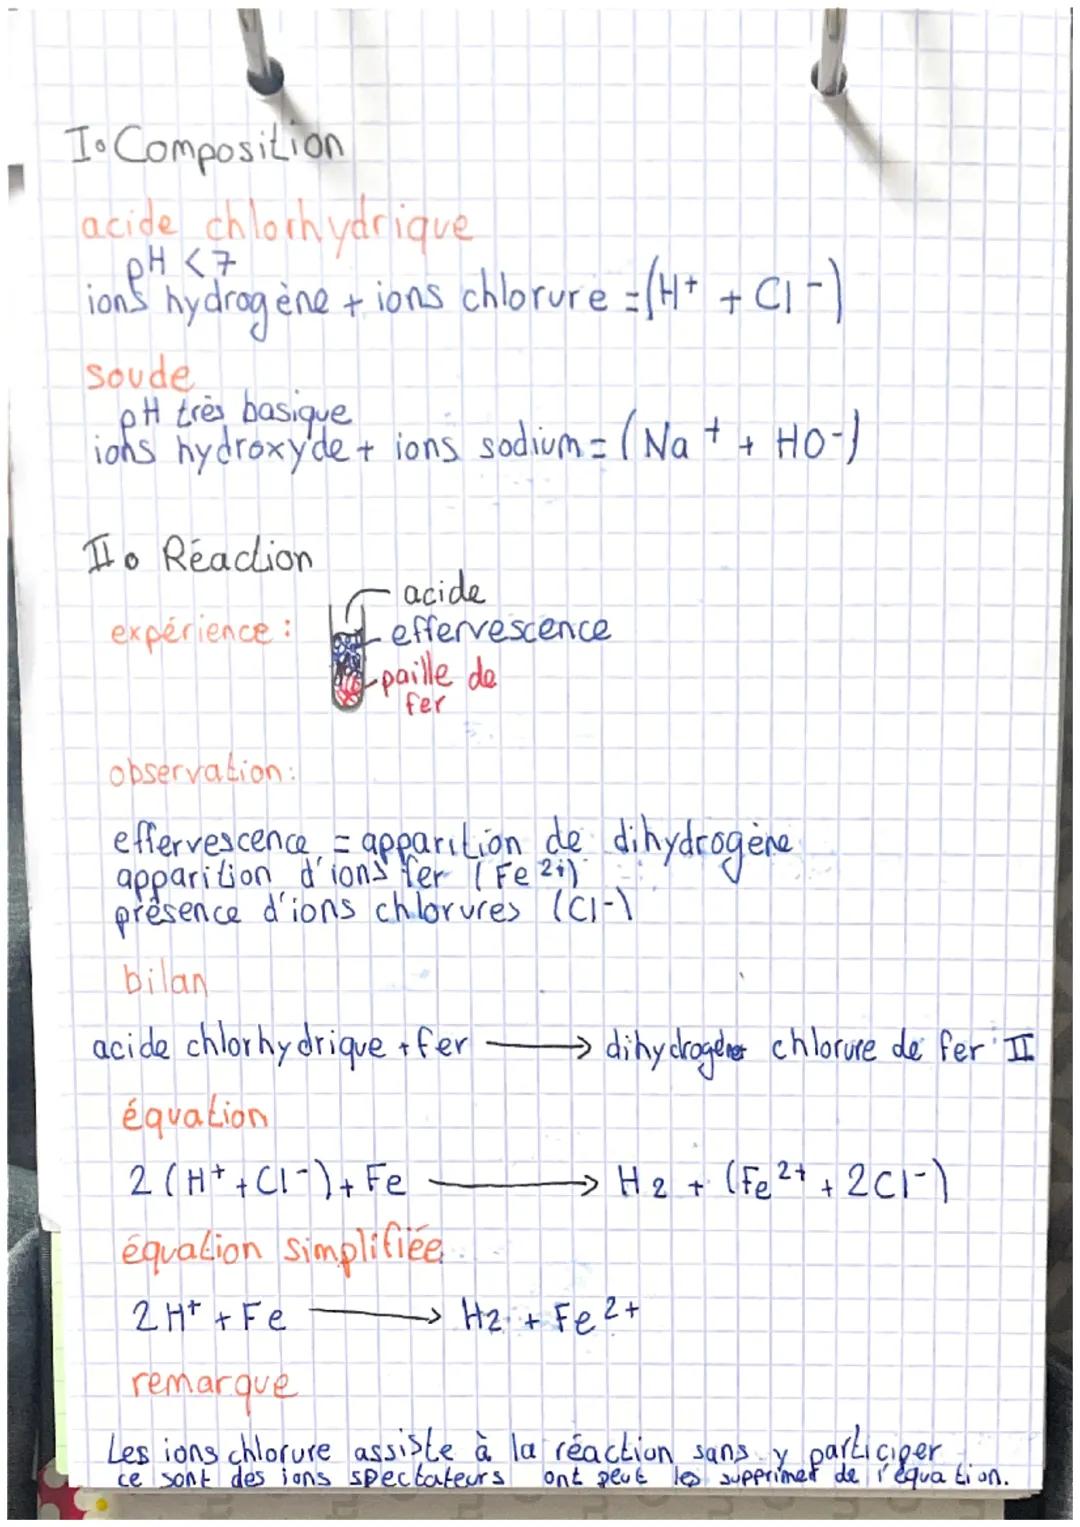 I. Composition
acide chlorhydrique
pH < 7
ions hydrogène + ions chlorure = (H+ + Cl-)
soude
pH très basique
ions hydroxyde + ions sodium = (Na+ + HO-)
II. Réaction
acide
expérience : effervescence
paille de
fer
observation:
effervescence = apparition de dihydrogène
apparition d'ions fer (Fe2+)
présence d'ions chlorures (Cl-)
bilan
acide chlorhydrique + fer → dihydrogène chlorure de fer II
équation
2 (H+ + Cl-) + Fe → H2 + (Fe2+ + 2Cl-)
équation simplifiée
2H+ + Fe → H2 + Fe2+
remarque
Les ions chlorure assiste à la réaction sans y participer
ce sont des ions spectateurs ont peut les supprimer de l'équation.